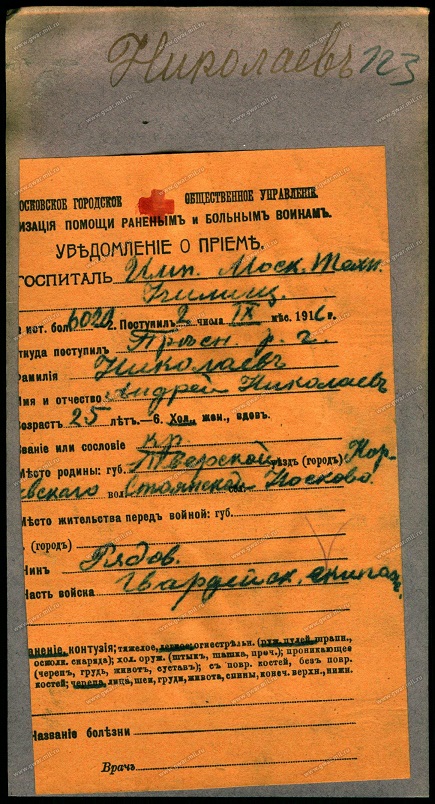 Николаевъ 123
МОСКОВСКОЕ ГОРОДСКОЕ ОБЩЕСТВЕННОЕ УПРАВЛЕНІЕ.
ИЗАЦІЯ ПОМОЩИ РАНЕНЫМЪ И БОЛЬНЫМЪ ВОИНАМЪ.
УВѢДОМЛЕНІЕ О ПРІЕМѢ.
ГОСПИТАЛЬ Имп. Моск. Техн.
Училищ.
№ ист. бол. 6029 г. Поступилъ 2 числа IX мѣс. 1916 г.
Откуда поступилъ г.
Фамилія Николаевъ
Имя и отчество Андрей Николаевъ
Возрастъ 25 лѣтъ.—6. Хол., жен., вдов.
Званіе или сословіе кр.
Мѣсто родины: губ. Тверской уѣздъ (городъ) Кор-
чевскаго вол. Носково
Мѣсто жительства передъ войной: губ.
(городъ)
Чинъ Рядов.
Часть войска Гвардейск. экипаж.
Раненіе, контузія; тяжелое, легкое; огнестрѣльн. (руж. пулей, шрапн.,
осколк. снаряда); хол. оруж. (штык., шашка, проч.); проникающее
(череп., грудь, живот., сустав.); съ повр. костей, безъ повр.
костей; черепа, лица, шеи, груди, живота, спины, конеч. верхн., нижн.
Названіе болѣзни
Врачъ
www.gwar.mil.ru